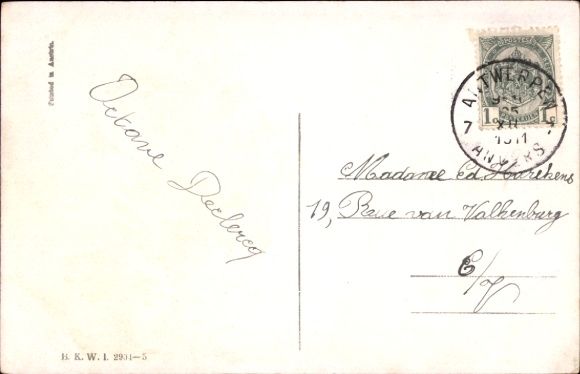 Printed in Austria.
Octave Declercq
ANTWERPEN
25
XII
1911
7
ANVERS
1c 1c
Madame Ed. Harekens
19, Rue van Valkenburg
E/V
B. K. W. I. 2934—5